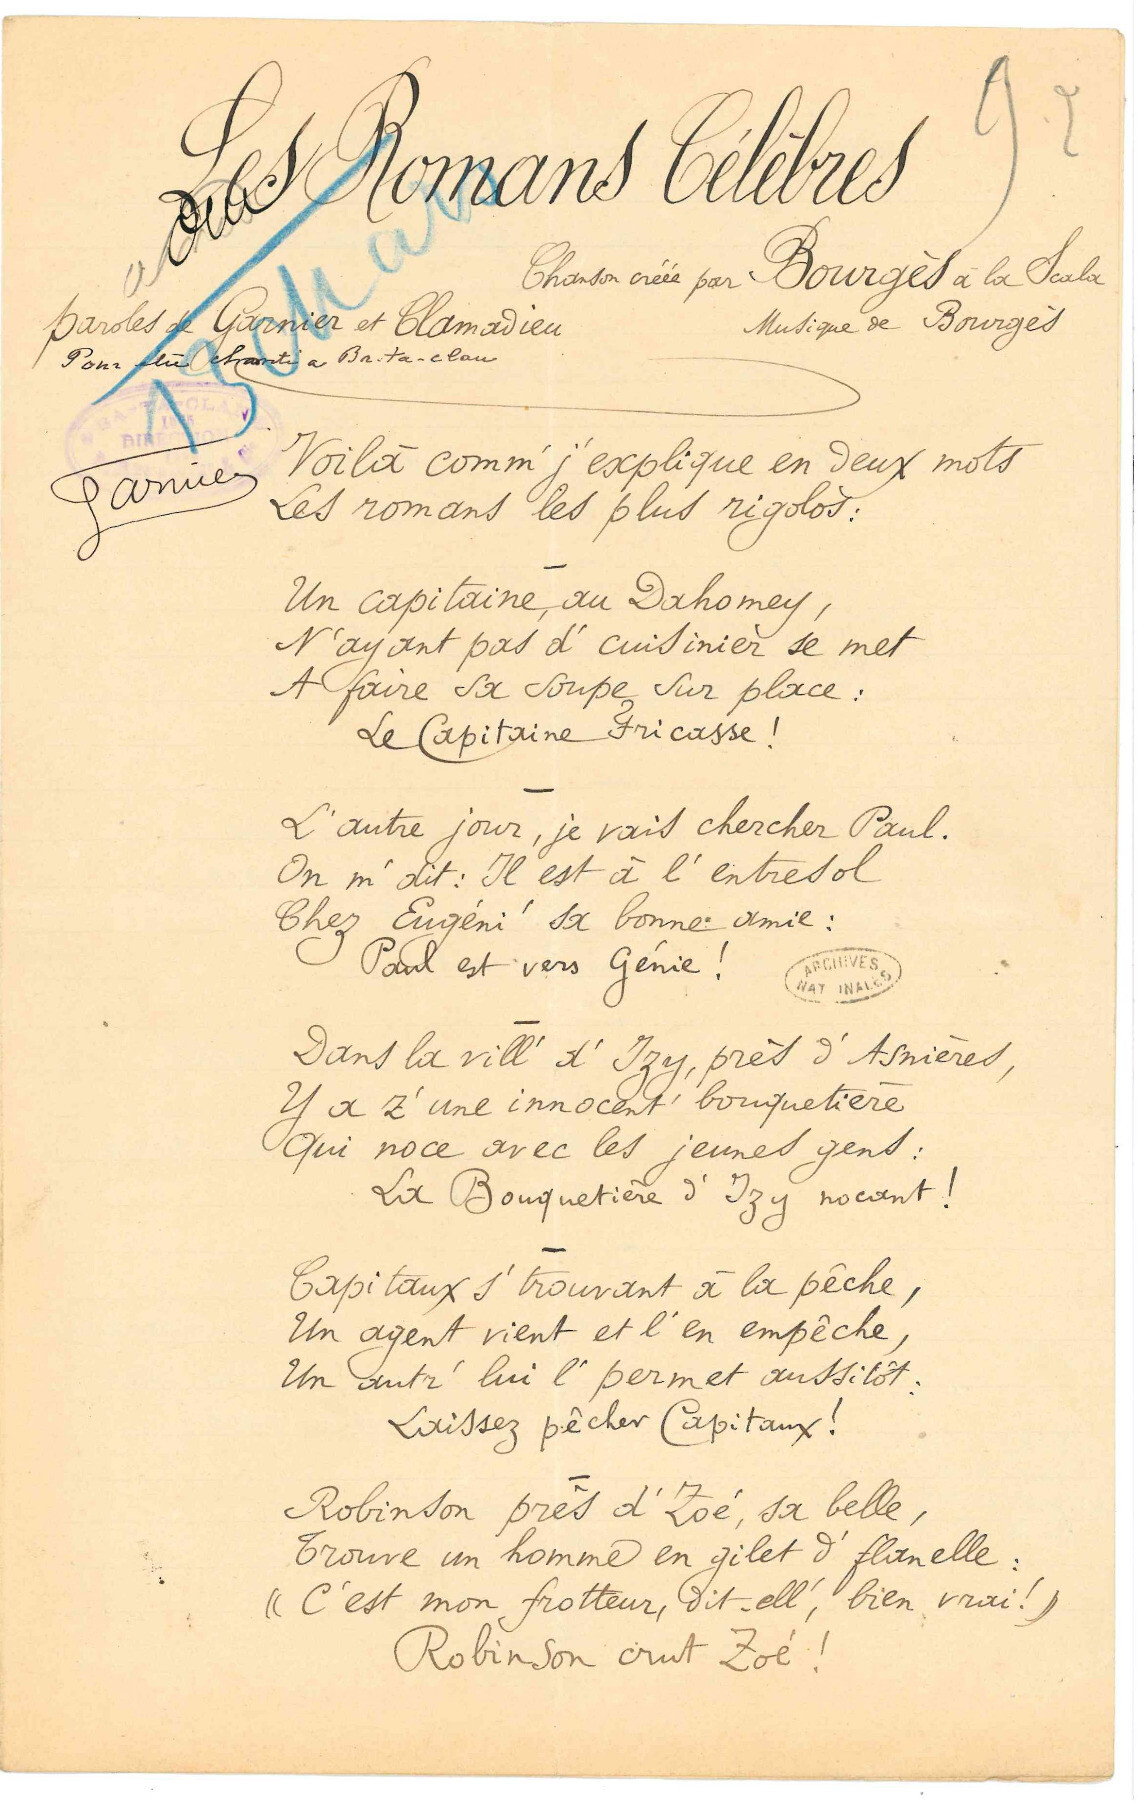 92
Les Romans Célèbres
Chanson créée par Bourgès à la Scala
paroles de Garnier et Clamadieu
Musique de Bourgès
Pour être chanté a Ba-ta-clan
13 Mars
BA-TA-CLAN
DIRECTION
Garnier
Voilà comm' j'explique en deux mots
Les romans les plus rigolos:
Un capitaine, au Dahomey,
N'ayant pas d'cuisinier se met
A faire sa soupe sur place:
Le Capitaine Fricasse!
L'autre jour, je vais chercher Paul.
On m'dit: Il est à l'entresol
Chez Eugéni' sa bonne amie:
Paul est vers Génie!
ARCHIVES
NATIONALES
Dans la vill' d'Izy, près d'Asnières,
Y a z'une innocent' bouquetière
Qui noce avec les jeunes gens:
La Bouquetière d'Izy nocant!
Capitaux s'trouvant à la pêche,
Un agent vient et l'en empêche,
Un autr' lui l'permet aussitôt:
Laissez pêcher Capitaux!
Robinson près d'Zoé, sa belle,
Trouve un homme en gilet d'flanelle:
«C'est mon frotteur, dit-ell', bien vrai!»
Robinson crut Zoé!